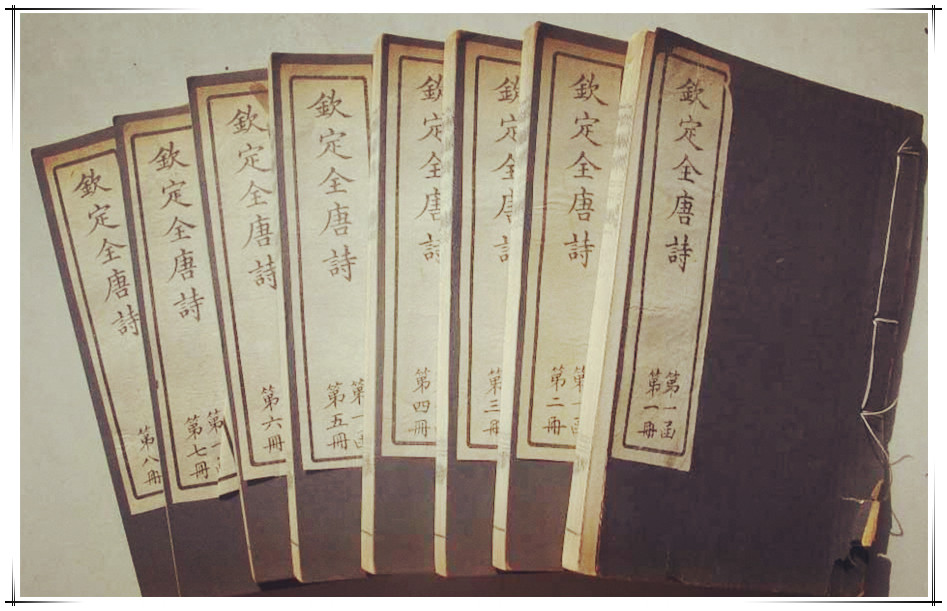 欽定全唐詩
第一函
第一冊
欽定全唐詩
第一函
第二冊
欽定全唐詩
第三冊
欽定全唐詩
第四冊
欽定全唐詩
第一函
第五冊
欽定全唐詩
第六冊
欽定全唐詩
第一
第七冊
欽定全唐詩
第八冊